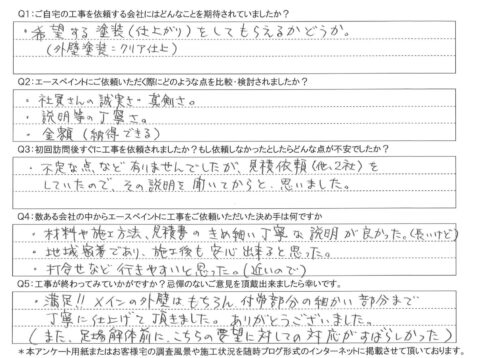 Q1:ご自宅の工事を依頼する会社にはどんなことを期待されていましたか?
・希望する塗装(仕上がり)をしてもらえるかどうか。
(外壁塗装=クリア仕上)
Q2:エースペイントにご依頼いただく際にどのような点を比較・検討されましたか?
・社員さんの誠実さ・真剣さ。
・説明等の丁寧さ。
・金額(納得できる)
Q3:初回訪問後すぐに工事を依頼されましたか?もし依頼しなかったとしたらどんな点が不安でしたか?
・不足な点など有りませんでしたが、見積依頼(他、2社)を
していたので、その説明を聞いてからと、思いました。
Q4:数ある会社の中からエースペイントに工事をご依頼いただいた決め手は何ですか
・材料や施工方法、見積書のきめ細い丁寧な説明が良かった。(長いけど)
・地域密着であり、施工後も安心出来ると思った。
・打合せなど行きやすいと思った。(近いので)
Q5:工事が終わってみていかがですか?忌憚のないご意見を頂戴出来ましたら幸いです。
・満足!! メインの外壁はもちろん、付帯部分の細かい部分まで
丁寧に仕上げて頂きました。ありがとうございました。
(また、足場解体前に、こちらの要望に対しての対応がすばらしかった)
*本アンケート用紙またはお客様宅の調査風景や施工状況を随時ブログ形式のインターネットに掲載させて頂いております。